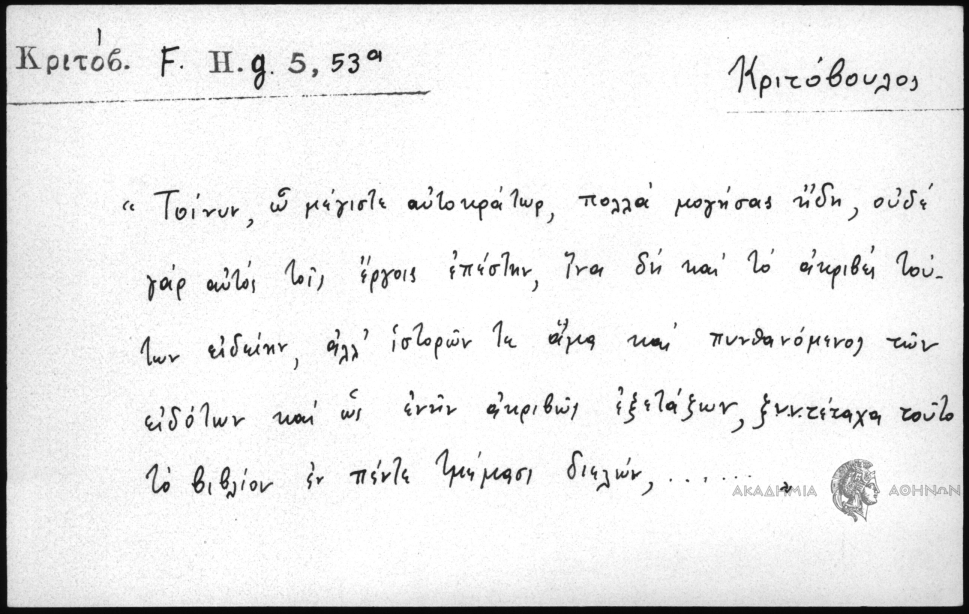 Κριτόβ. F. H. g. 5, 53ᵃ
Κριτόβουλος
“ Τοίνυν, ὦ μέγιστε αὐτοκράτωρ, πολλά μογήσας ἤδη, οὐδέ
γάρ αὐτός τοῖς ἔργοις ἐπέστην, ἵνα δή καί τό ἀκριβές τού-
των εἰδείην, ἀλλ’ ἱστορῶν τε ἅμα καί πυνθανόμενος τῶν
εἰδότων καί ὡς ἐνῆν ἀκριβῶς ἐξετάζων, ξυντέταχα τοῦτο
τό βιβλίον ἐν πέντε τμήμασι διελών, ...... „
ΑΚΑΔΗΜΙΑ ΑΘΗΝΩΝ